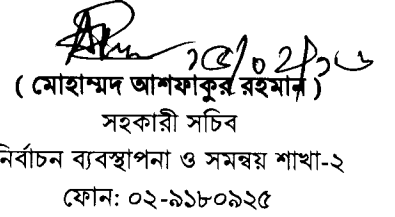 ( মোহাম্মদ আশফাকুর রহমান )
সহকারী সচিব
নির্বাচন ব্যবস্থাপনা ও সমন্বয় শাখা-২
ফোন: ০২-৯১৮০৯২৫